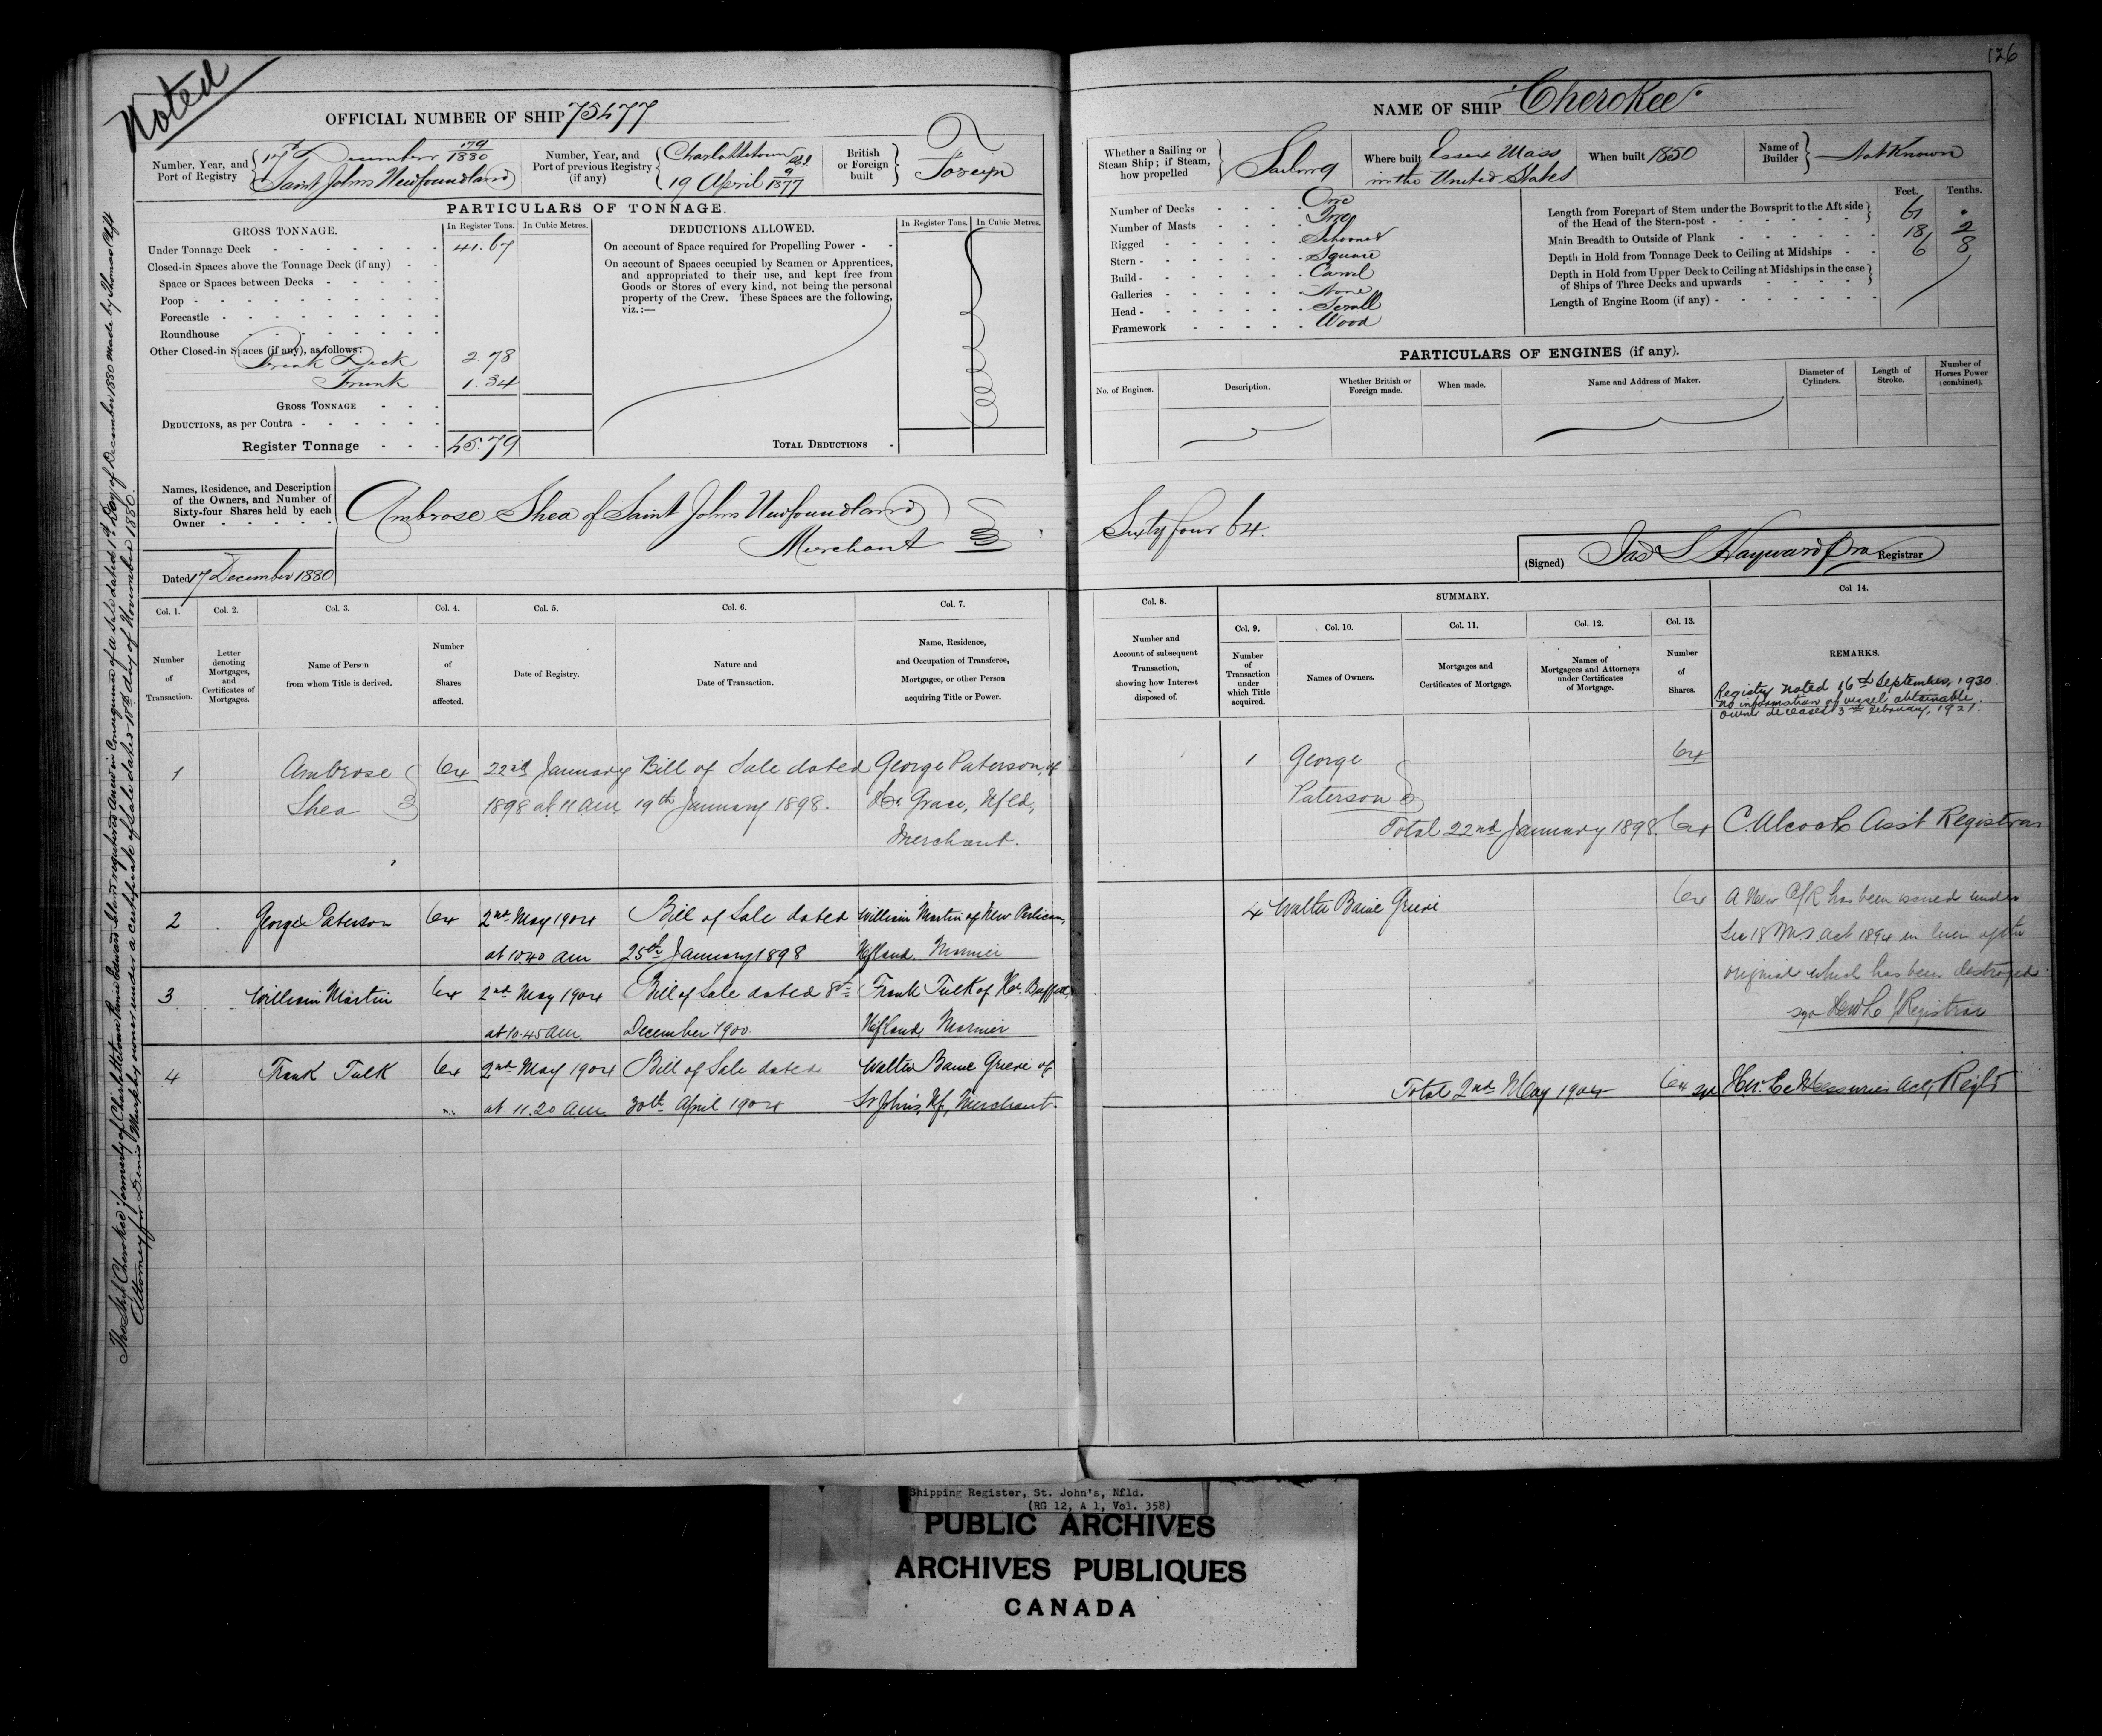 Noted
126
OFFICIAL NUMBER OF SHIP 75477
NAME OF SHIP "Cherokee"
Number, Year, and
Port of Registry
17th December 179/1880
Saint Johns Newfoundland
Number, Year, and
Port of previous Registry
(if any)
Charlottetown P.E.I.
19 April 9/1877
British
or Foreign
built
Foreign
Whether a Sailing or
Steam Ship; if Steam,
how propelled
Sailing
Where built Essex Mass
in the United States
When built 1850
Name of
Builder
Not Known
PARTICULARS OF TONNAGE.
GROSS TONNAGE.
In Register Tons.
In Cubic Metres.
DEDUCTIONS ALLOWED.
In Register Tons.
In Cubic Metres.
Under Tonnage Deck 41.67
Closed-in Spaces above the Tonnage Deck (if any)
Space or Spaces between Decks
Poop
Forecastle
Roundhouse
Other Closed-in Spaces (if any), as follows:
Break Deck 2.78
Trunk 1.34
GROSS TONNAGE
DEDUCTIONS, as per Contra
Register Tonnage 45.79
On account of Space required for Propelling Power
On account of Spaces occupied by Seamen or Apprentices,
and appropriated to their use, and kept free from
Goods or Stores of every kind, not being the personal
property of the Crew. These Spaces are the following,
viz.:—
TOTAL DEDUCTIONS
Number of Decks One
Number of Masts Two
Rigged Schooner
Stern Square
Build Carvel
Galleries None
Head Scroll
Framework Wood
Feet.
Tenths.
Length from Forepart of Stem under the Bowsprit to the Aft side
of the Head of the Stern-post 61 .
Main Breadth to Outside of Plank 18 2
Depth in Hold from Tonnage Deck to Ceiling at Midships 6 8
Depth in Hold from Upper Deck to Ceiling at Midships in the case
of Ships of Three Decks and upwards
Length of Engine Room (if any)
PARTICULARS OF ENGINES (if any).
No. of Engines.
Description.
Whether British or
Foreign made.
When made.
Name and Address of Maker.
Diameter of
Cylinders.
Length of
Stroke.
Number of
Horses Power
(combined).
Names, Residence, and Description
of the Owners, and Number of
Sixty-four Shares held by each
Owner
Ambrose Shea of Saint Johns Newfoundland
Merchant
Sixty four 64.
Dated 17 December 1880
(Signed) Jas S Hayward Registrar
Col. 1.
Col. 2.
Col. 3.
Col. 4.
Col. 5.
Col. 6.
Col. 7.
Col. 8.
SUMMARY.
Col 14.
Col. 9.
Col. 10.
Col. 11.
Col. 12.
Col. 13.
Number
of
Transaction.
Letter
denoting
Mortgages,
and
Certificates of
Mortgages.
Name of Person
from whom Title is derived.
Number
of
Shares
affected.
Date of Registry.
Nature and
Date of Transaction.
Name, Residence,
and Occupation of Transferee,
Mortgagee, or other Person
acquiring Title or Power.
Number and
Account of subsequent
Transaction,
showing how Interest
disposed of.
Number
of
Transaction
under
which Title
acquired.
Names of Owners.
Mortgages and
Certificates of Mortgage.
Names of
Mortgagees and Attorneys
under Certificates
of Mortgage.
Number
of
Shares.
REMARKS.
Registry noted 16th September, 1930.
No information of vessel obtainable.
Owner deceased 3rd February, 1921.
1 Ambrose 64 22nd January Bill of Sale dated George Paterson, of
Shea 1898 at 11 am 19th January 1898. Hr. Grace, Nfld,
Merchant.
1 George 64
Paterson
Total 22nd January 1898. 64 C. Alcock Asst Registrar
2 George Paterson 64 2nd May 1904 Bill of Sale dated William Martin of New Perlican,
at 10.40 am 25th January 1898 Nfland. Mariner
3 William Martin 64 2nd May 1904 Bill of Sale dated 8th Frank Tulk of Hr. Buffett,
at 10.45 am December 1900. Nfland, Mariner
4 Frank Tulk 64 2nd May 1904 Bill of Sale dated Walter Baine Grieve of
at 11.20 am 30th April 1904 St John's, Nf, Merchant.
4 Walter Baine Grieve 64
A New C/R has been issued under
Sec 18 M.S. act 1894 in lieu of the
original which has been destroyed.
Registrar
Total 2nd May 1904 64
The Ship "Cherokee" formerly of Charlottetown Prince Edward Island registered Anew in Consequence of a Sale dated 1st Day of December 1880 made by Thomas
Attorney for Denis Murphy owner under a certificate of sale dated 11th day of November 1880.
Shipping Register, St. John's, Nfld.
(RG 12, A 1, Vol. 358)
PUBLIC ARCHIVES
ARCHIVES PUBLIQUES
CANADA